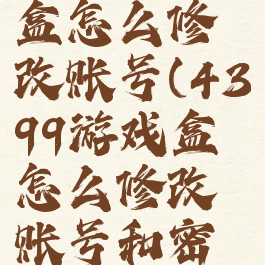 盒怎么修
改账号(43
99游戏盒
怎么修改
账号和密